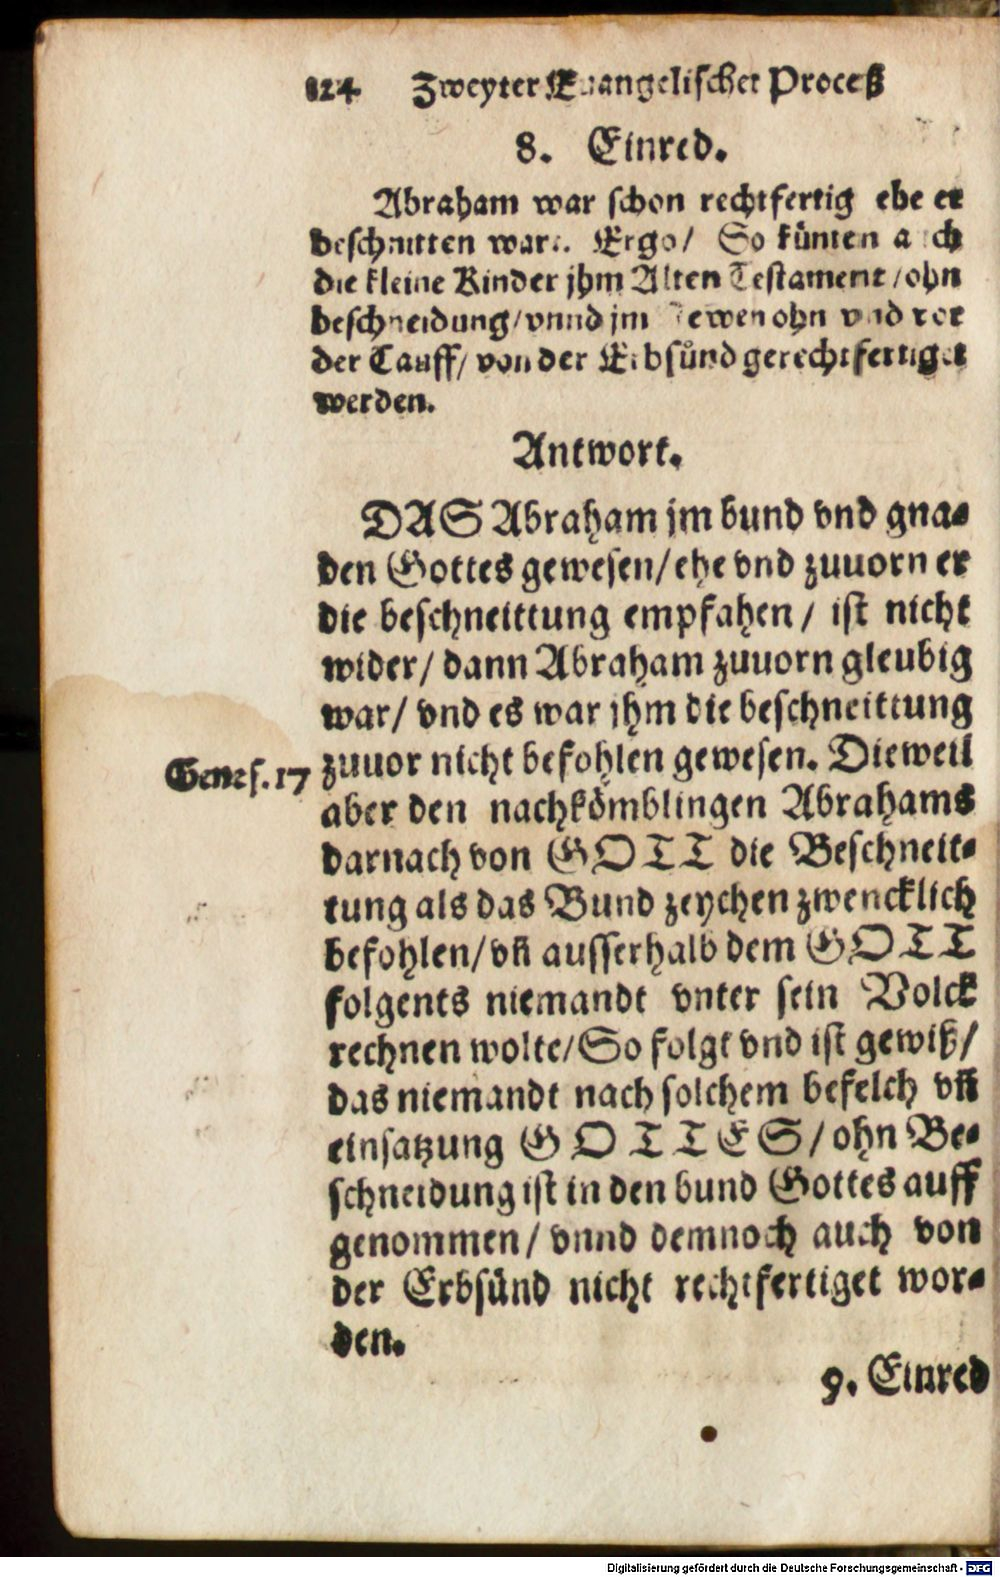 124 Zweyter Euangelischer Proceß
8. Einred.
Abraham war schon rechtfertig ehe er
beschnitten ward. Ergo/ So künten auch
die kleine Kinder jhm Alten Testament/ohn
beschneidung/vnnd jm Newen ohn vnd vor
der Tauff/ von der Erbsünd gerechtfertiget
werden.
Antwort.
DAS Abraham jm bund vnd gna-
den Gottes gewesen/ehe vnd zuuorn er
die beschneittung empfahen/ ist nicht
wider/ dann Abraham zuuorn gleubig
war/ vnd es war jhm die beschneittung
Genes. 17 zuuor nicht befohlen gewesen. Dieweil
aber den nachkömblingen Abrahams
darnach von GOTT die Beschneit-
tung als das Bund zeychen zwencklich
befohlen/vñ ausserhalb dem GOTT
folgents niemandt vnter sein Volck
rechnen wolte/So folgt vnd ist gewiß/
das niemandt nach solchem befelch vñ
einsatzung GOTTES/ohn Be-
schneidung ist in den bund Gottes auff
genommen/ vnnd demnoch auch von
der Erbsünd nicht rechtfertiget wor-
den.
9. Einred
Digitalisierung gefördert durch die Deutsche Forschungsgemeinschaft - DFG